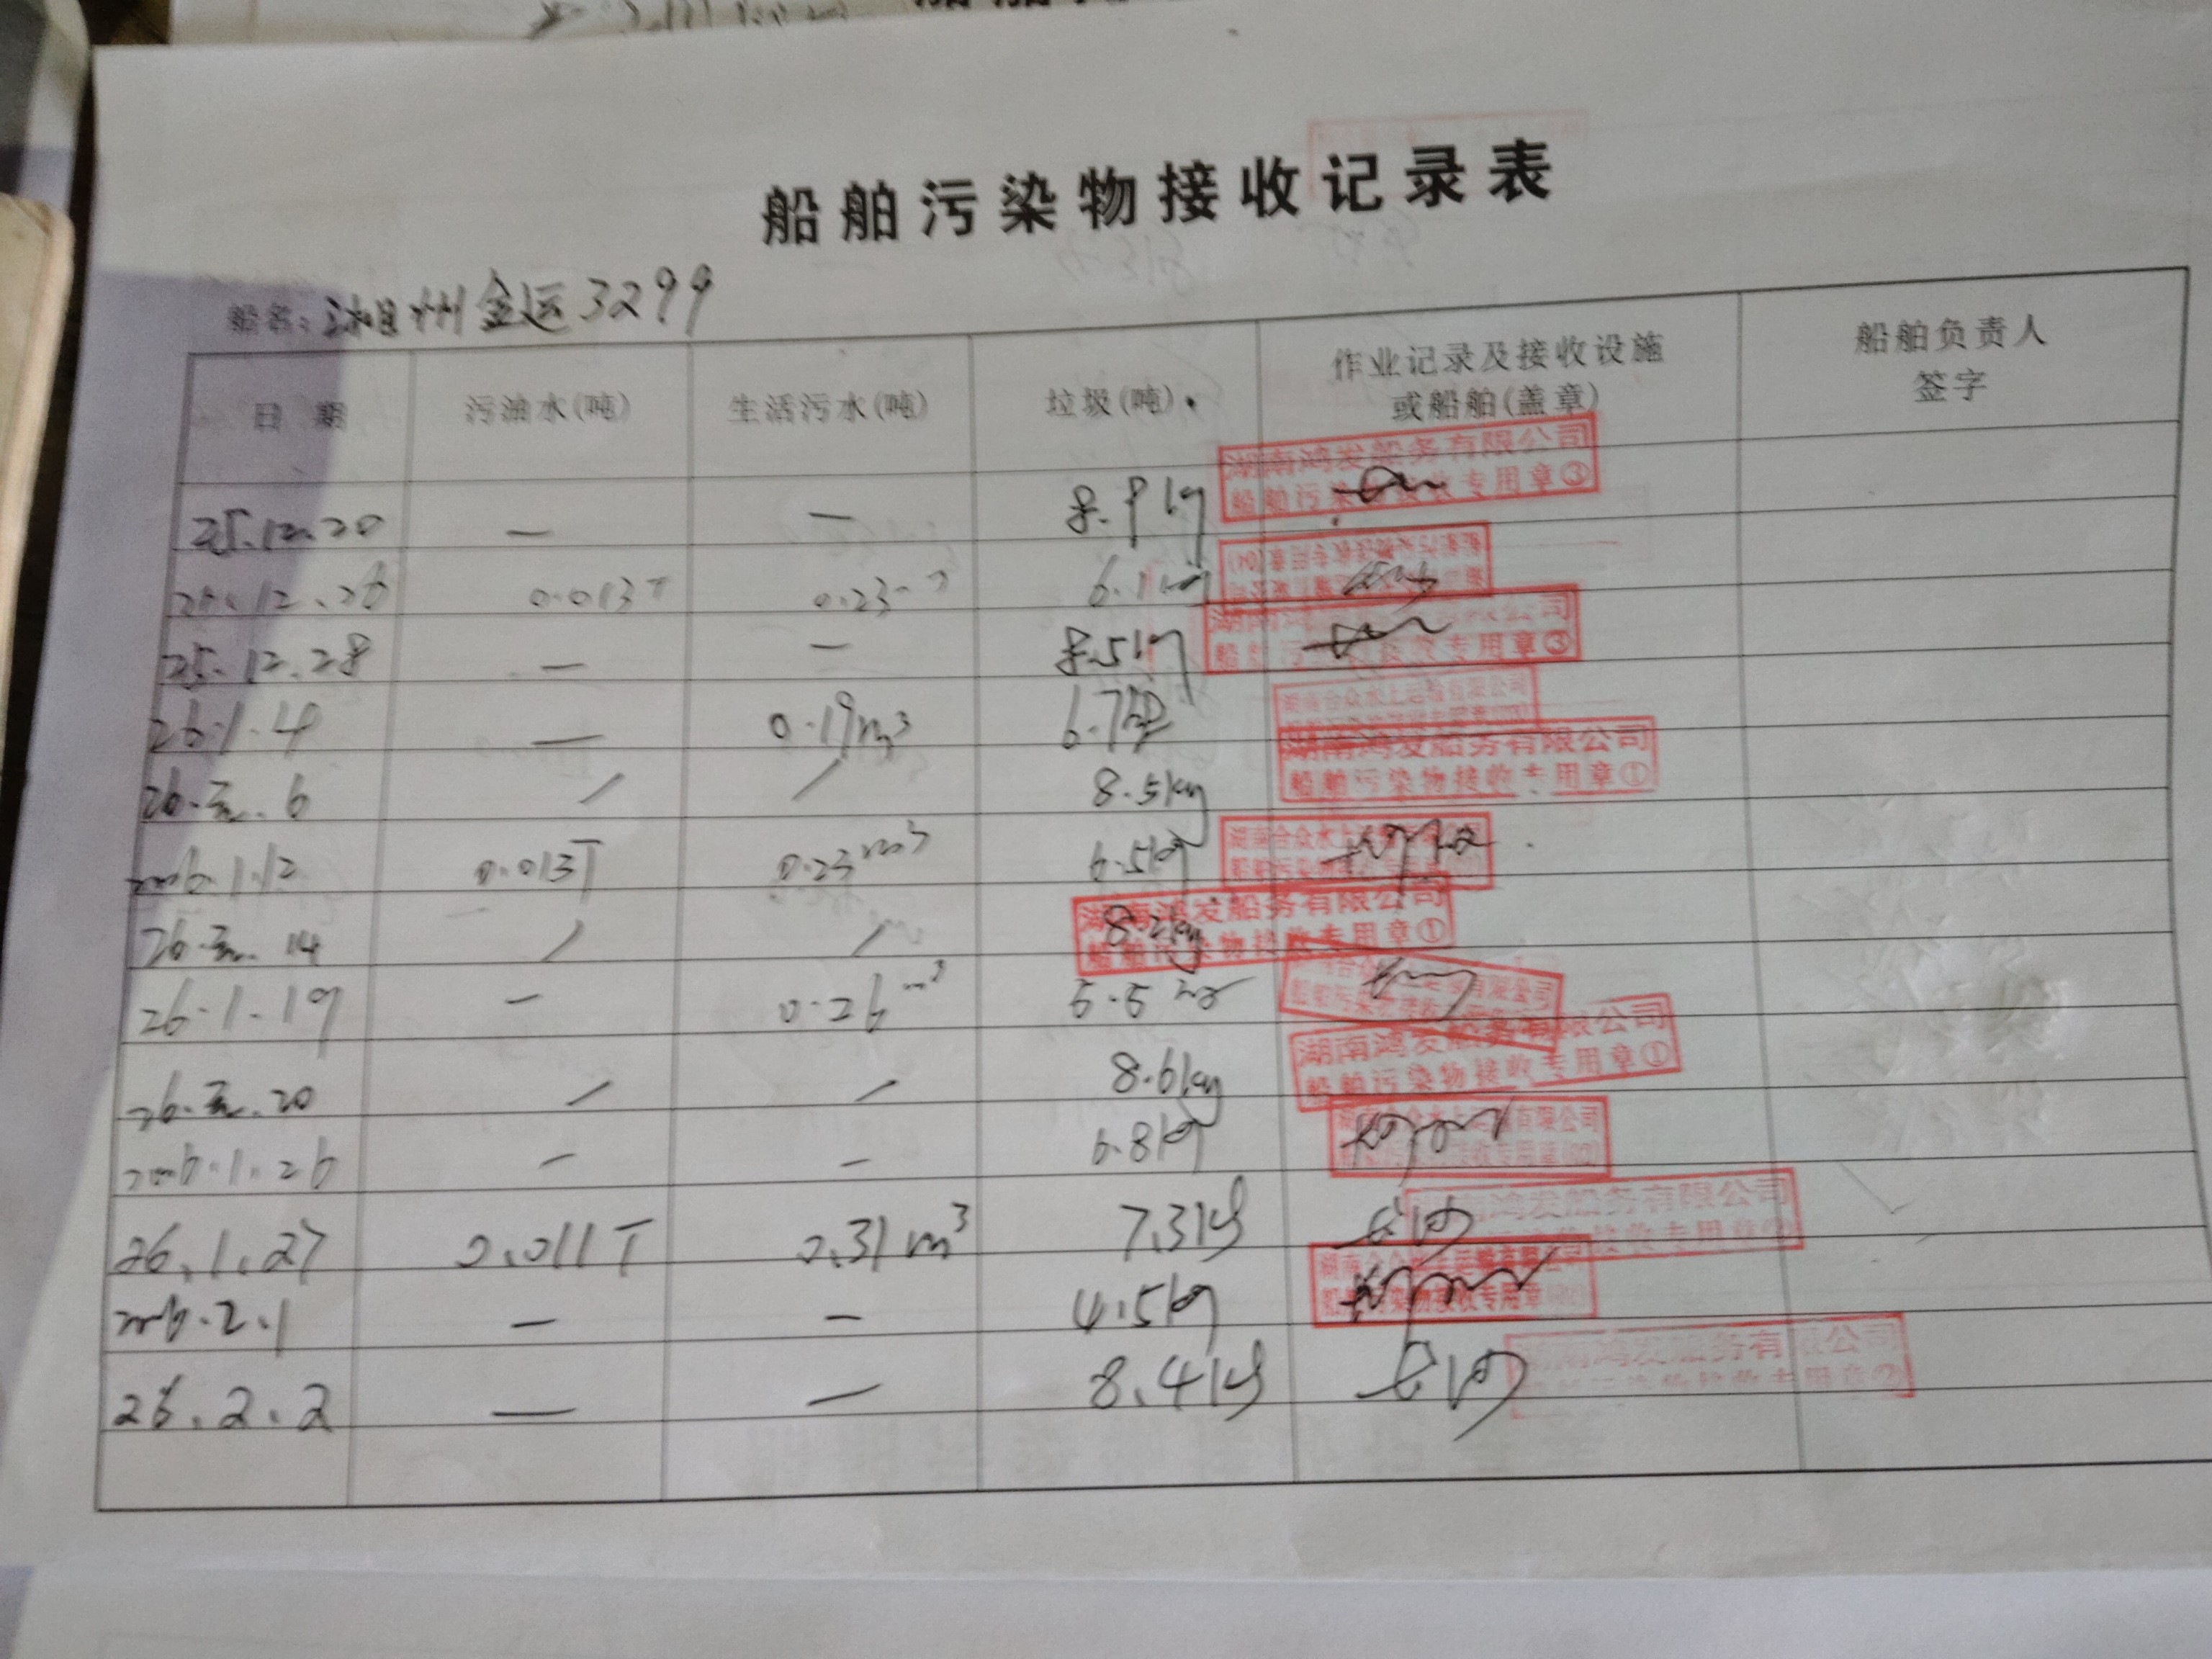 船舶污染物接收记录表
船名: 湘州金运3299
日 期 污油水(吨) 生活污水(吨) 垃圾(吨) 作业记录及接收设施或船舶(盖章) 船舶负责人签字
湖南鸿发船务有限公司
船舶污染物接收专用章③
25.12.20 — — 8.9kg
25.12.26 0.013T 0.23m³ 6.1kg
25.12.28 — — 8.5kg
船舶污染物接收专用章③
26.1.4 — 0.19m³ 6.7kg
湖南合众水上运输有限公司
湖南鸿发船务有限公司
船舶污染物接收专用章①
26.元.6 / / 8.5kg
2026.1.12 0.013T 0.23m³ 6.5kg
湖南合众水上
湖南鸿发船务有限公司
船舶污染物接收专用章①
26.元.14 / / 8.2kg
26.1.19 — 0.26m³ 5.5kg
有限公司
船舶污染物接收
湖南鸿发船务有限公司
船舶污染物接收专用章①
26.元.20 / / 8.6kg
2026.1.26 — — 6.8kg
有限公司
26.1.27 0.011T 0.31m³ 7.3kg
湖南鸿发船务有限公司
接收专用章②
2026.2.1 — — 4.5kg
船舶污染物接收专用章
26.2.2 — — 8.4kg
湖南鸿发船务有限公司
船舶污染物接收专用章②